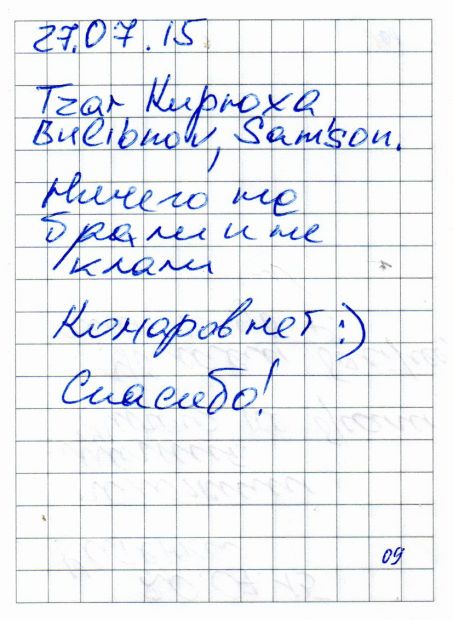 27.07.15
Tzar Кирюха
Bulibnov, Sam'son.
Ничего не
брали и не
клали
Комаров нет :)
Спасибо!
09